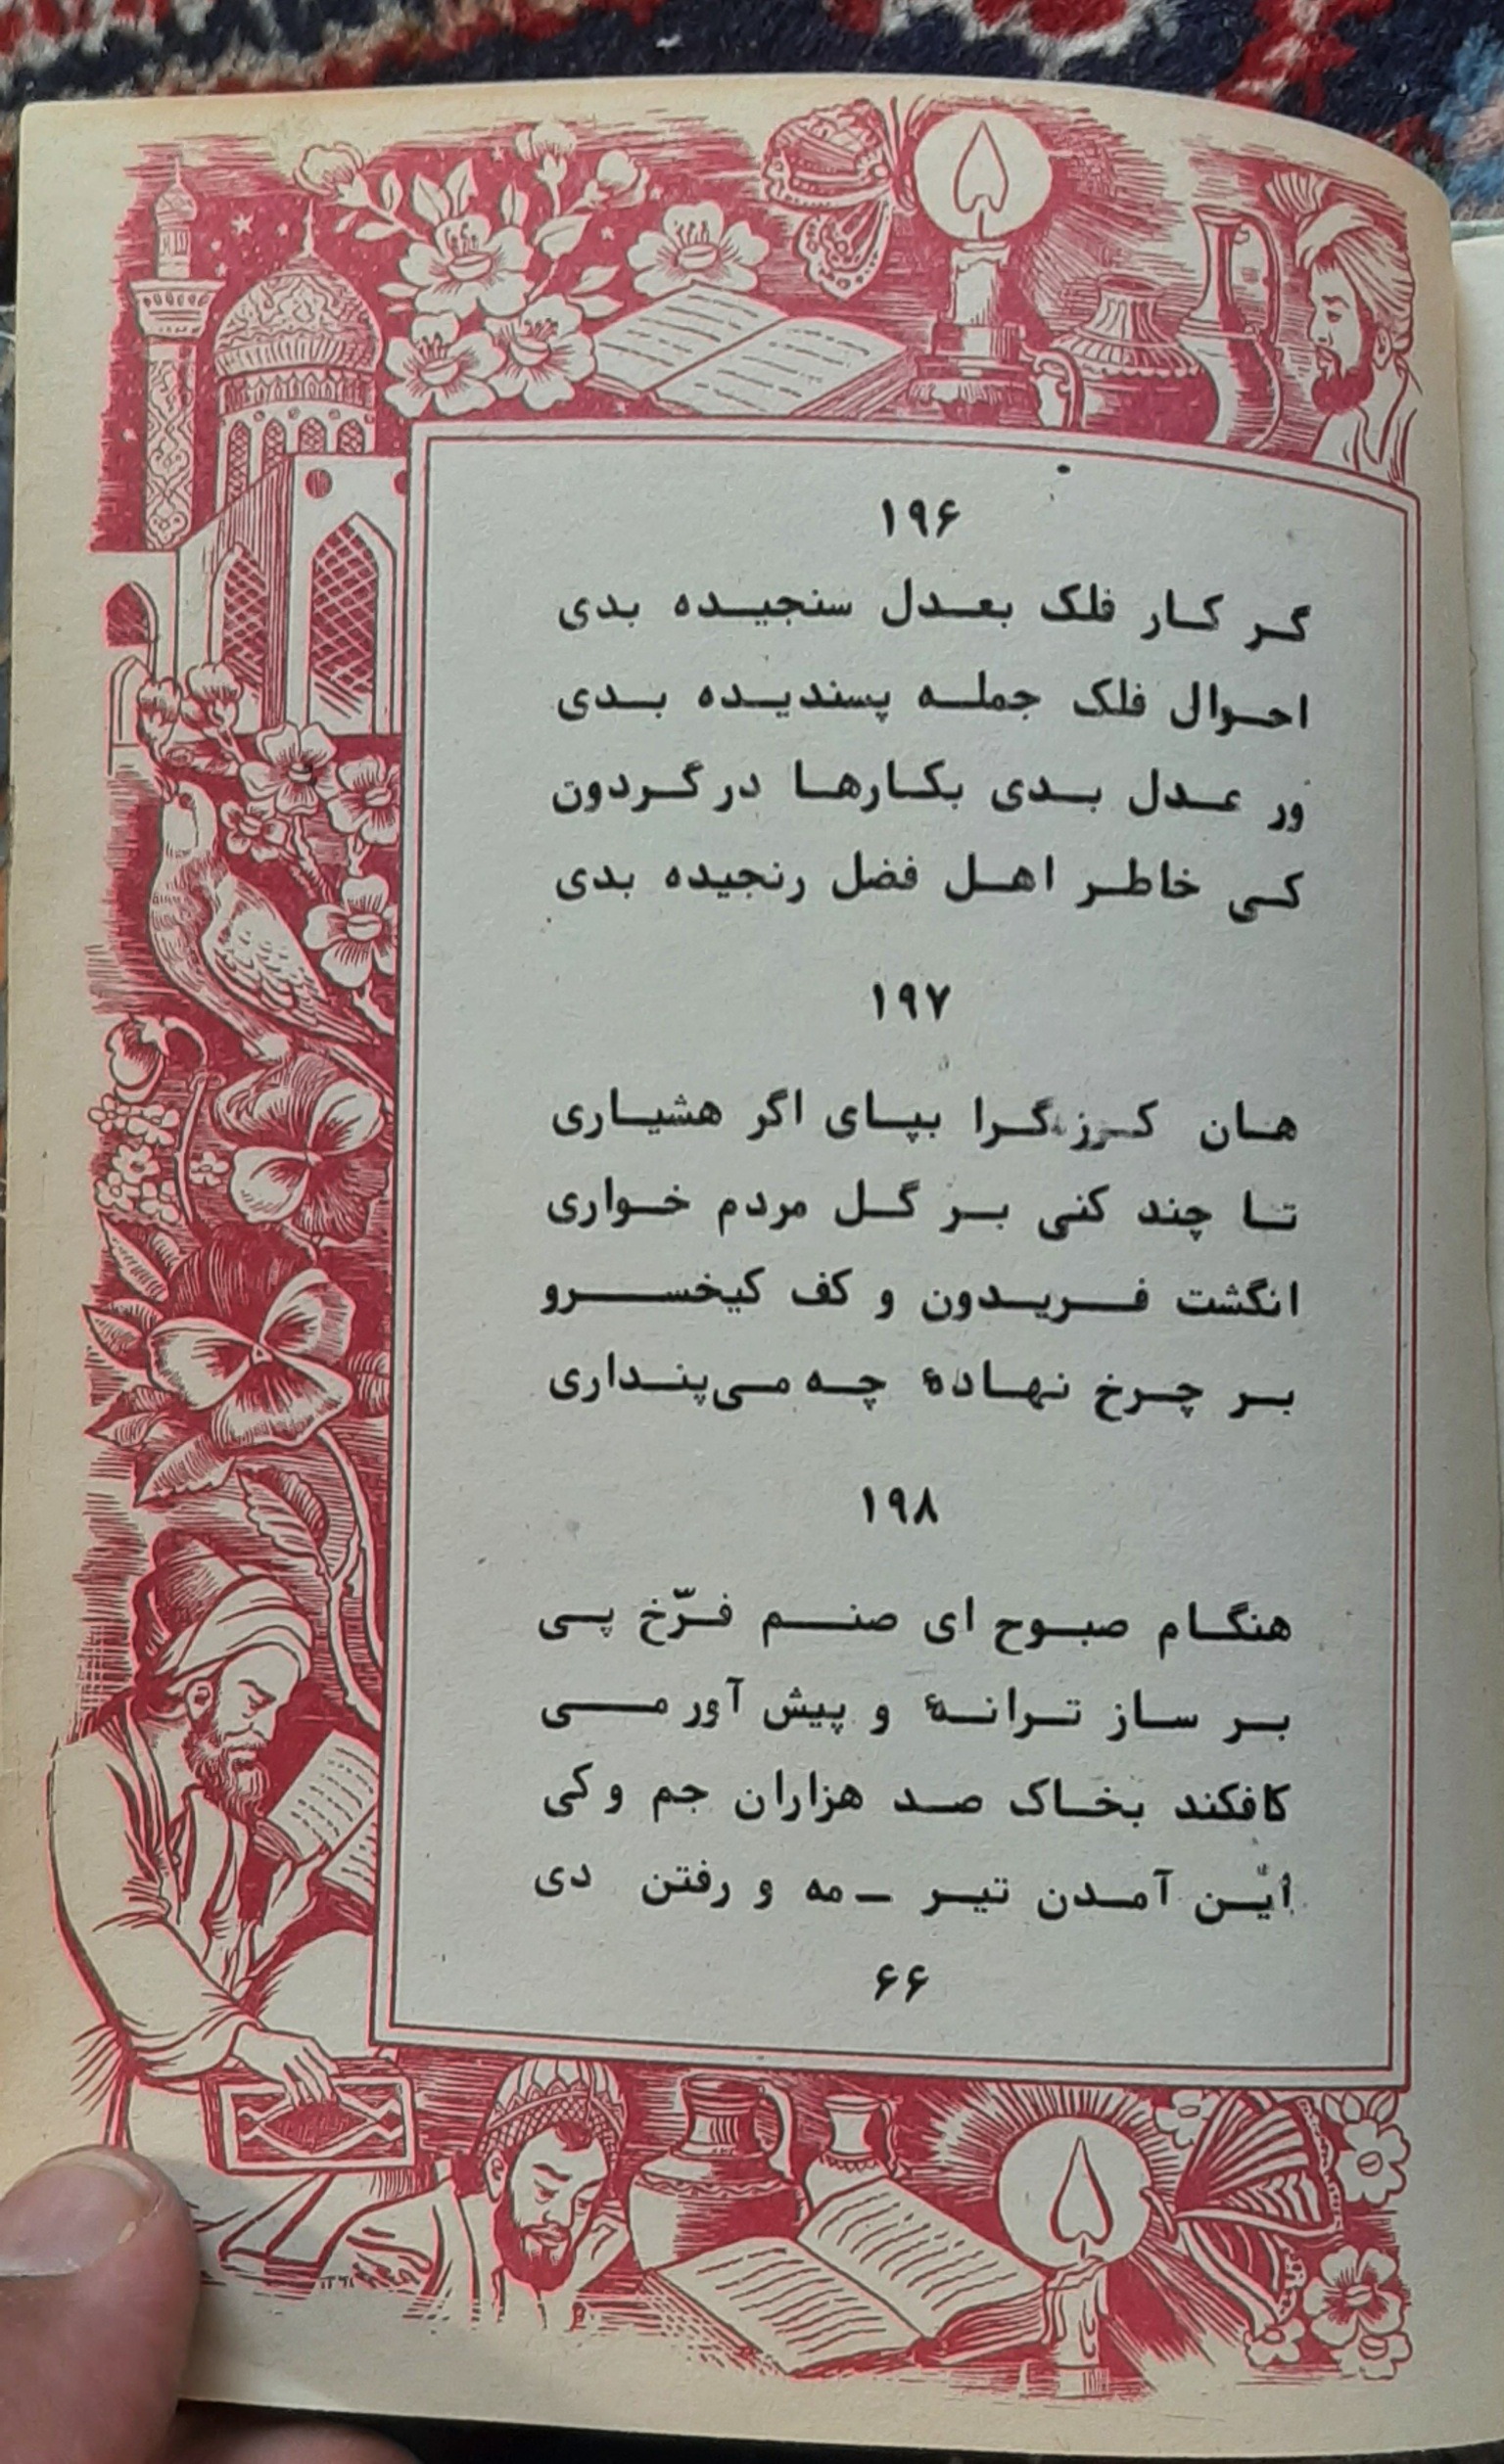 ۱۹۶
گر کار فلک بعدل سنجیده بدی
احوال فلک جمله پسندیده بدی
ور عدل بدی بکارها در گردون
کی خاطر اهل فضل رنجیده بدی
۱۹۷
هان کرزگرا بپای اگر هشیاری
تا چند کنی بر گل مردم خواری
انگشت فریدون و کف کیخسرو
بر چرخ نهادهٔ چه می‌پنداری
۱۹۸
هنگام صبوح ای صنم فرّخ پی
بر ساز ترانهٔ و پیش آور می
کافکند بخاک صد هزاران جم و کی
این آمدن تیر - مه و رفتن دی
۶۶